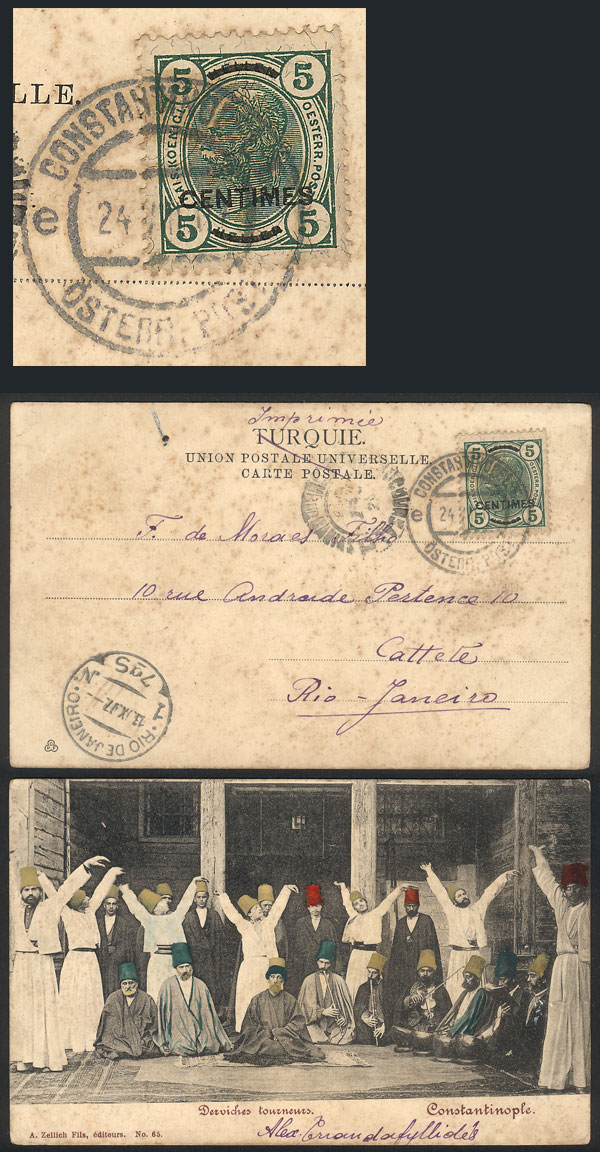 LLE.
5 HELLER 5
KAIS. KOENIGL.
OESTERR. POST
CENTIMES
5 HELLER 5
CONSTANT
e 24
ÖSTERR. POST
Imprimée
TURQUIE.
UNION POSTALE UNIVERSELLE.
CARTE POSTALE.
5 5
CENTIMES
5 5
CONSTANT
e 24
ÖSTERR. POST
F. de Moraes Filho
10 rue Andrade Pertence 10
Cattete
Rio-Janeiro
7aS
RIO DE JANEIRO
Derviches tourneurs.
Constantinople.
A. Zellich Fils, éditeurs. No. 65.
Alex Triandafyllidés